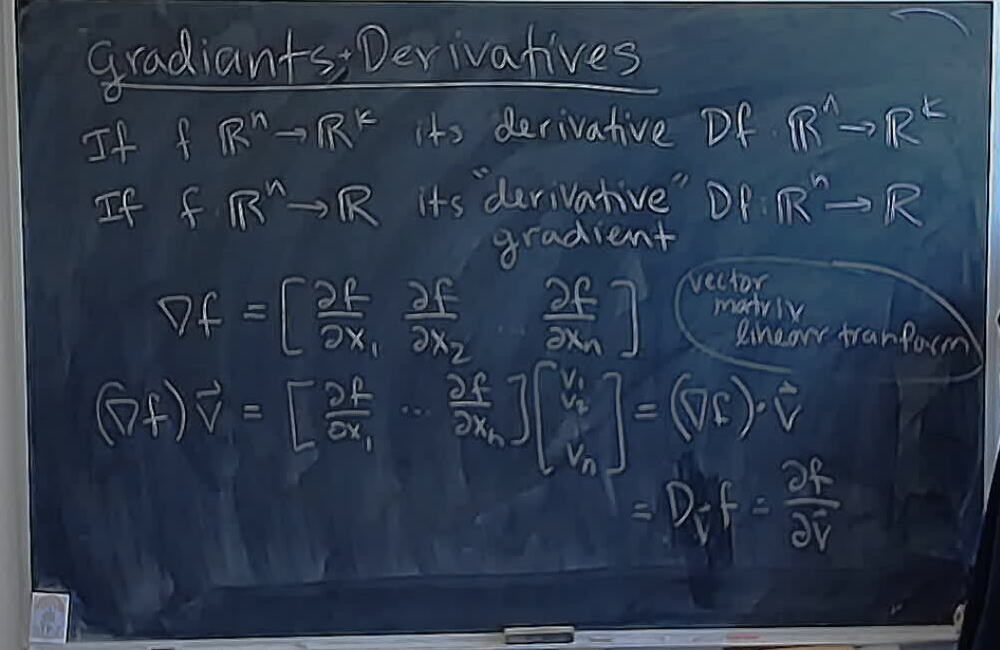 Gradiants; Derivatives
If f ℝⁿ→ℝᵏ its derivative Df: ℝⁿ→ℝᵏ
If f: ℝⁿ→ℝ its "derivative" Df: ℝⁿ→ℝ
gradient
∇f = [∂f/∂x₁ ∂f/∂x₂ ... ∂f/∂xₙ]
vector
matrix
linear tranform
(∇f) v⃗ = [∂f/∂x₁ ... ∂f/∂xₙ] [v₁ v₂ vₙ] = (∇f)·v⃗
= D_v⃗ f = ∂f/∂v⃗